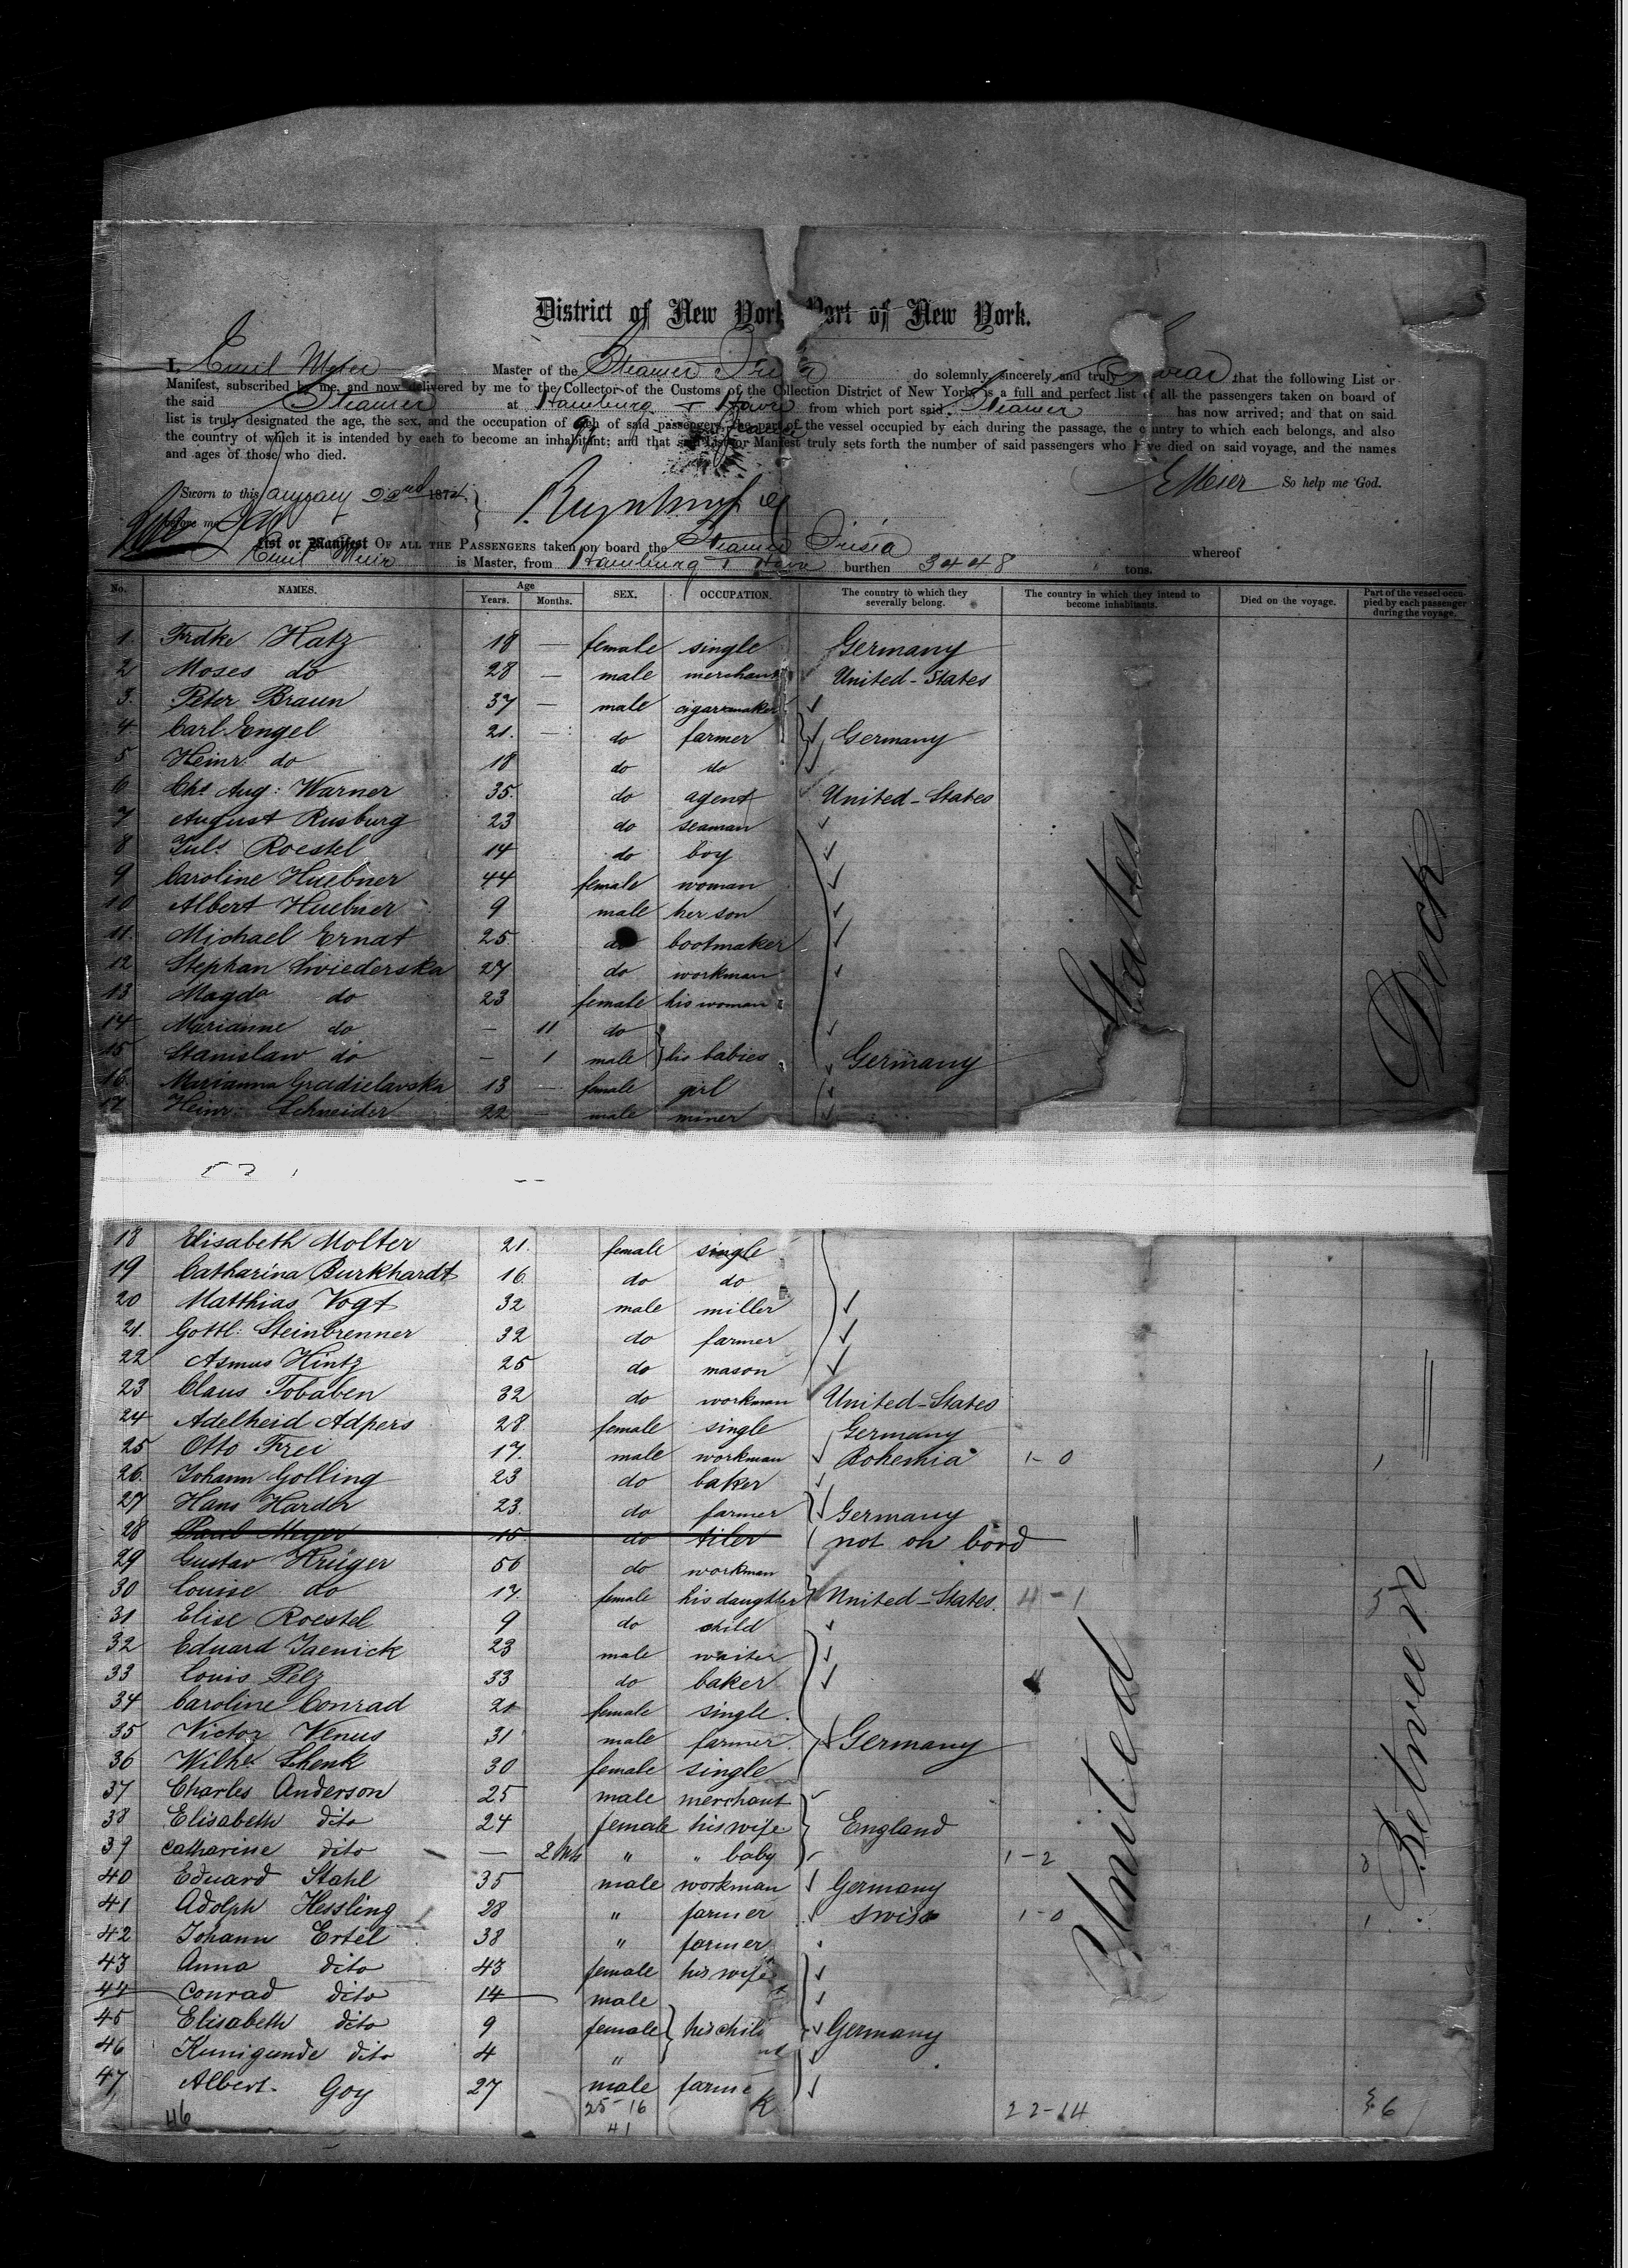 District of New York Port of New York.
I, Emil Meier Master of the Steamer Frisia do solemnly, sincerely and truly swear that the following List or
Manifest, subscribed by me, and now delivered by me to the Collector of the Customs of the Collection District of New York, is a full and perfect list of all the passengers taken on board of
the said Steamer at Hamburg & Havre from which port said Steamer has now arrived; and that on said
list is truly designated the age, the sex, and the occupation of each of said passengers, the part of the vessel occupied by each during the passage, the country to which each belongs, and also
the country of which it is intended by each to become an inhabitant; and that said List or Manifest truly sets forth the number of said passengers who have died on said voyage, and the names
and ages of those who died.
Sworn to this January 22nd 187 EMeier So help me God.
before me
List or Manifest OF ALL THE PASSENGERS taken on board the Steamer Frisia whereof
Emil Meier is Master, from Hamburg & Havre burthen 3448 tons.
No. NAMES. Age Years. Months. SEX. OCCUPATION. The country to which they severally belong. The country in which they intend to become inhabitants. Died on the voyage. Part of the vessel occupied by each passenger during the voyage.
1. Frdke Katz 18 — female single Germany
2 Moses do 28 — male merchant United-States
3. Peter Braun 37 — male cigarmaker
4 Carl Engel 21. — do farmer Germany
5 Heinr: do 18 do do
6 Chs Aug: Warner 35. do agent United-States
7 August Rusburg 23 do seaman
8 Juls Roestel 14 do boy
9 Caroline Huebner 44 female woman
10 Albert Huebner 9 male her son
11. Michael Ernat 25 do bootmaker
12 Stephan Swiederska 27 do workman
13 Magda do 23 female his woman
14 Marianne do — 11 do
15 Stanislaw do — 1 male his babies Germany
16. Marianna Gradielavska 13 — female girl
17 Heinr: Schneider 22 — male miner
18 Elisabeth Molter 21. female single
19 Catharina Burkhardt 16. do do
20 Matthias Vogt 32 male miller
21. Gottl: Steinbrenner 32 do farmer
22 Asmus Hintz 25 do mason
23 Claus Tobaben 32 do workman United-States
24 Adelheid Adpers 28. female single Germany
25 Otto Frei 17. male workman Bohemia 1-0 1
26. Johann Golling 23 do baker
27 Hans Harder 23. do farmer Germany
28 Paul Meyer 15 do tiler not on bord
29 Gustav Krüger 56 do workman
30 Louise do 17. female his daughter United-States. 4-1 5
31 Elise Roestel 9 do child
32 Eduard Jaenick 23 male waiter
33 Louis Pelz 33 do baker
34 Caroline Conrad 21 female single.
35 Victor Venus 31 male farmer Germany
36 Wilhe Schenk 30 female single
37 Charles Anderson 25 male merchant
38 Elisabeth dito 24 female his wife England
39 Catharine dito — 2 Mth " " baby 1-2 3
40 Eduard Stahl 35 male workman Germany
41 Adolph Hessling 28 " farmer Swiss 1-0 1
42 Johann Ertel 38 " farmer
43 Anna dito 43 female his wife
44 Conrad dito 14 male
45 Elisabeth dito 9 female his child Germany
46 Kunigunde dito 4 "
47 Albert Goy 27 male farme
46 25-16 22-14 36
41
United States
Deck
Between